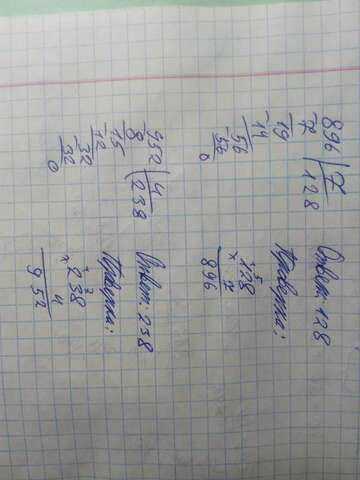 896 | 7
-7 | 128
19
-14
56
-56
0
Ответ: 128
Проверка:
128
× 7
896
952 | 4
-8 | 238
15
-12
32
-32
0
Ответ: 238
Проверка:
238
× 4
952